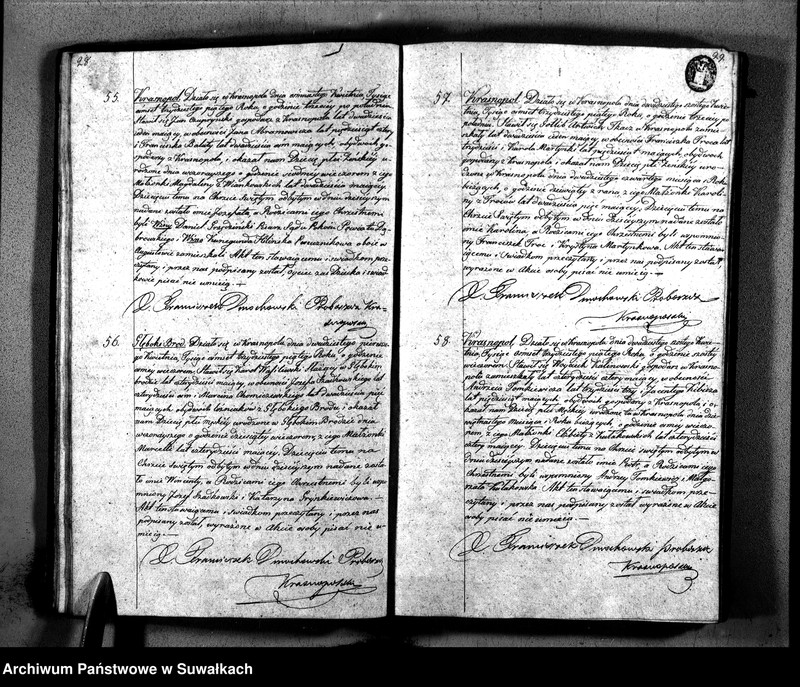 28
55.
Krasnopol. Działo się w Krasnopolu dnia osmnastego Kwietnia, Tysiąc
osmset trzydziestego piątego Roku, o godzinie trzeciey po południu
Stawił się Jan gospodarz z Krasnopola lat dwadzieścia
ieden maiący, w obecności Jana lat pięćdziesiąt cztery
i Franciszka Balaty lat dwadzieścia osm maiących, obydwóch go-
spodarzy z Krasnopola, i okazał nam Dziecię płci Żeńskiey u-
rodzone dnia wczorayszego o godzinie siodmey wieczorem z iego
Małżonki Magdaleny z lat dwadzieścia maiącey.
Dziecięciu temu na Chrzcie Świętym odbytym w dniu dzisieyszym
nadane zostało imie Jozefata, a Rodzicami iego Chrzestnemi
byli Daniel Pisarz Sądu Pokoiu Powiatu Dą-
browskiego i Kunegunda oboie w
zamieszkali. Akt ten stawaiącemu i świadkom prze-
czytany i przez nas podpisany został, Oycie zaś Dziecka i świad-
kowie pisać nie umieią.
X. Franciszek Dmochowski Proboszcz Kra-
snopolski
56.
Głęboki Brod. Działo się w Krasnopolu dnia dwudziestego pierwsze-
go Kwietnia, Tysiąc osmset trzydziestego piątego Roku, o godzinie
osmey wieczorem. Stawił się Karol Wasilewski Strażny w Głębokim
brodzie lat czterdzieści maiący, w obecności Jozefa lat
czterdzieści osm i Marcina lat dwadzieścia pięć
maiących obydwóch z Głębokiego Brodu, i okazał
nam Dziecię płci męskiey urodzone w Głębokim Brodzie dnia
wczorayszego o godzinie dziesiątey wieczorem, z iego Małżonki
Marcelli lat czterdzieści maiącey. Dziecięciu temu na
Chrzcie Świętym odbytym w dniu dzisieyszym nadane zosta-
ło imie Wincenty, a Rodzicami iego Chrzestnemi byli wspo-
mniony Jozef i Katarzyna Hrynkiewiczowa.
Akt ten stawaiącemu i świadkom przeczytany i przez nas
podpisany został, wyrażone w Akcie osoby pisać nie u-
mieią.
X. Franciszek Dmochowski Proboszcz
Krasnopolski
29
57.
Krasnopol. Działo się w Krasnopolu dnia dwudziestego szostego Kwie-
tnia, Tysiąc osmset trzydziestego piątego Roku, o godzinie trzeciey po
południu. Stawił się Tkacz w Krasnopolu zamie-
szkały lat dwadzieścia siedm maiący, w obecności Franciszka Troc lat
trzydzieści, i Karola Martynki lat pięćdziesiąt maiących, obydwóch
gospodarzy z Krasnopola i okazał nam Dziecię płci Żeńskiey uro-
dzone w Krasnopolu dnia dwudziestego czwartego miesiąca i Roku
bieżących, o godzinie dziewiątey z rana, z iego Małżonki Karoli-
ny z Troców lat dwadzieścia pięć maiącey. Dziecięciu temu na
Chrzcie Świętym odbytym w dniu dzisieyszym nadane zostało i-
mie Karolina, a Rodzicami iego Chrzestnemi byli wspomnio-
ny Franciszek Troc i Krystyna Martynkowa. Akt ten stawa-
iącemu i świadkom przeczytany i przez nas podpisany został,
wyrażone w Akcie osoby pisać nie umieią.
X. Franciszek Dmochowski Proboszcz
Krasnopolski
58.
Krasnopol. Działo się w Krasnopolu dnia dwudziestego szostego Kwie-
tnia, Tysiąc osmset trzydziestego piątego Roku, o godzinie szostey
wieczorem. Stawił się Woyciech Kalinowski gospodarz w Krasno-
polu zamieszkały lat czterdzieści cztery maiący, w obecności
Andrzeia Tomkiewicza lat trzydzieści trzy, i Jacentego
lat pięćdziesiąt maiących, obydwóch gospodarzy z Krasnopola, i o-
kazał nam Dziecię płci Męskiey urodzone tu w Krasnopolu dnia dzie-
więtnastego Miesiąca i Roku bieżących, o godzinie osmey wieczo-
rem, z iego Małżonki Elżbiety z lat czterdzieści
cztery maiącey. Dziecięciu temu na Chrzcie Świętym odbytym w
dniu dzisieyszym nadane zostało imie a Rodzicami iego
Chrzestnemi byli wspomniony Andrzey Tomkiewicz i Małgo-
rzata Akt ten stawaiącemu i świadkom prze-
czytany i przez nas podpisany został, wyrażone w Akcie
osoby pisać nie umieią.
X. Franciszek Dmochowski Proboszcz
Krasnopolski
Archiwum Państwowe w Suwałkach